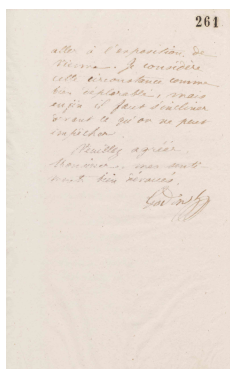 261
aller à l'exposition de
Vienne. Je considère
cette circonstance comme
bien déplorable, mais
enfin il faut s'incliner
devant ce qu'on ne peut
empêcher.
Veuillez agréer,
Monsieur, mes senti-
ments bien dévoués.